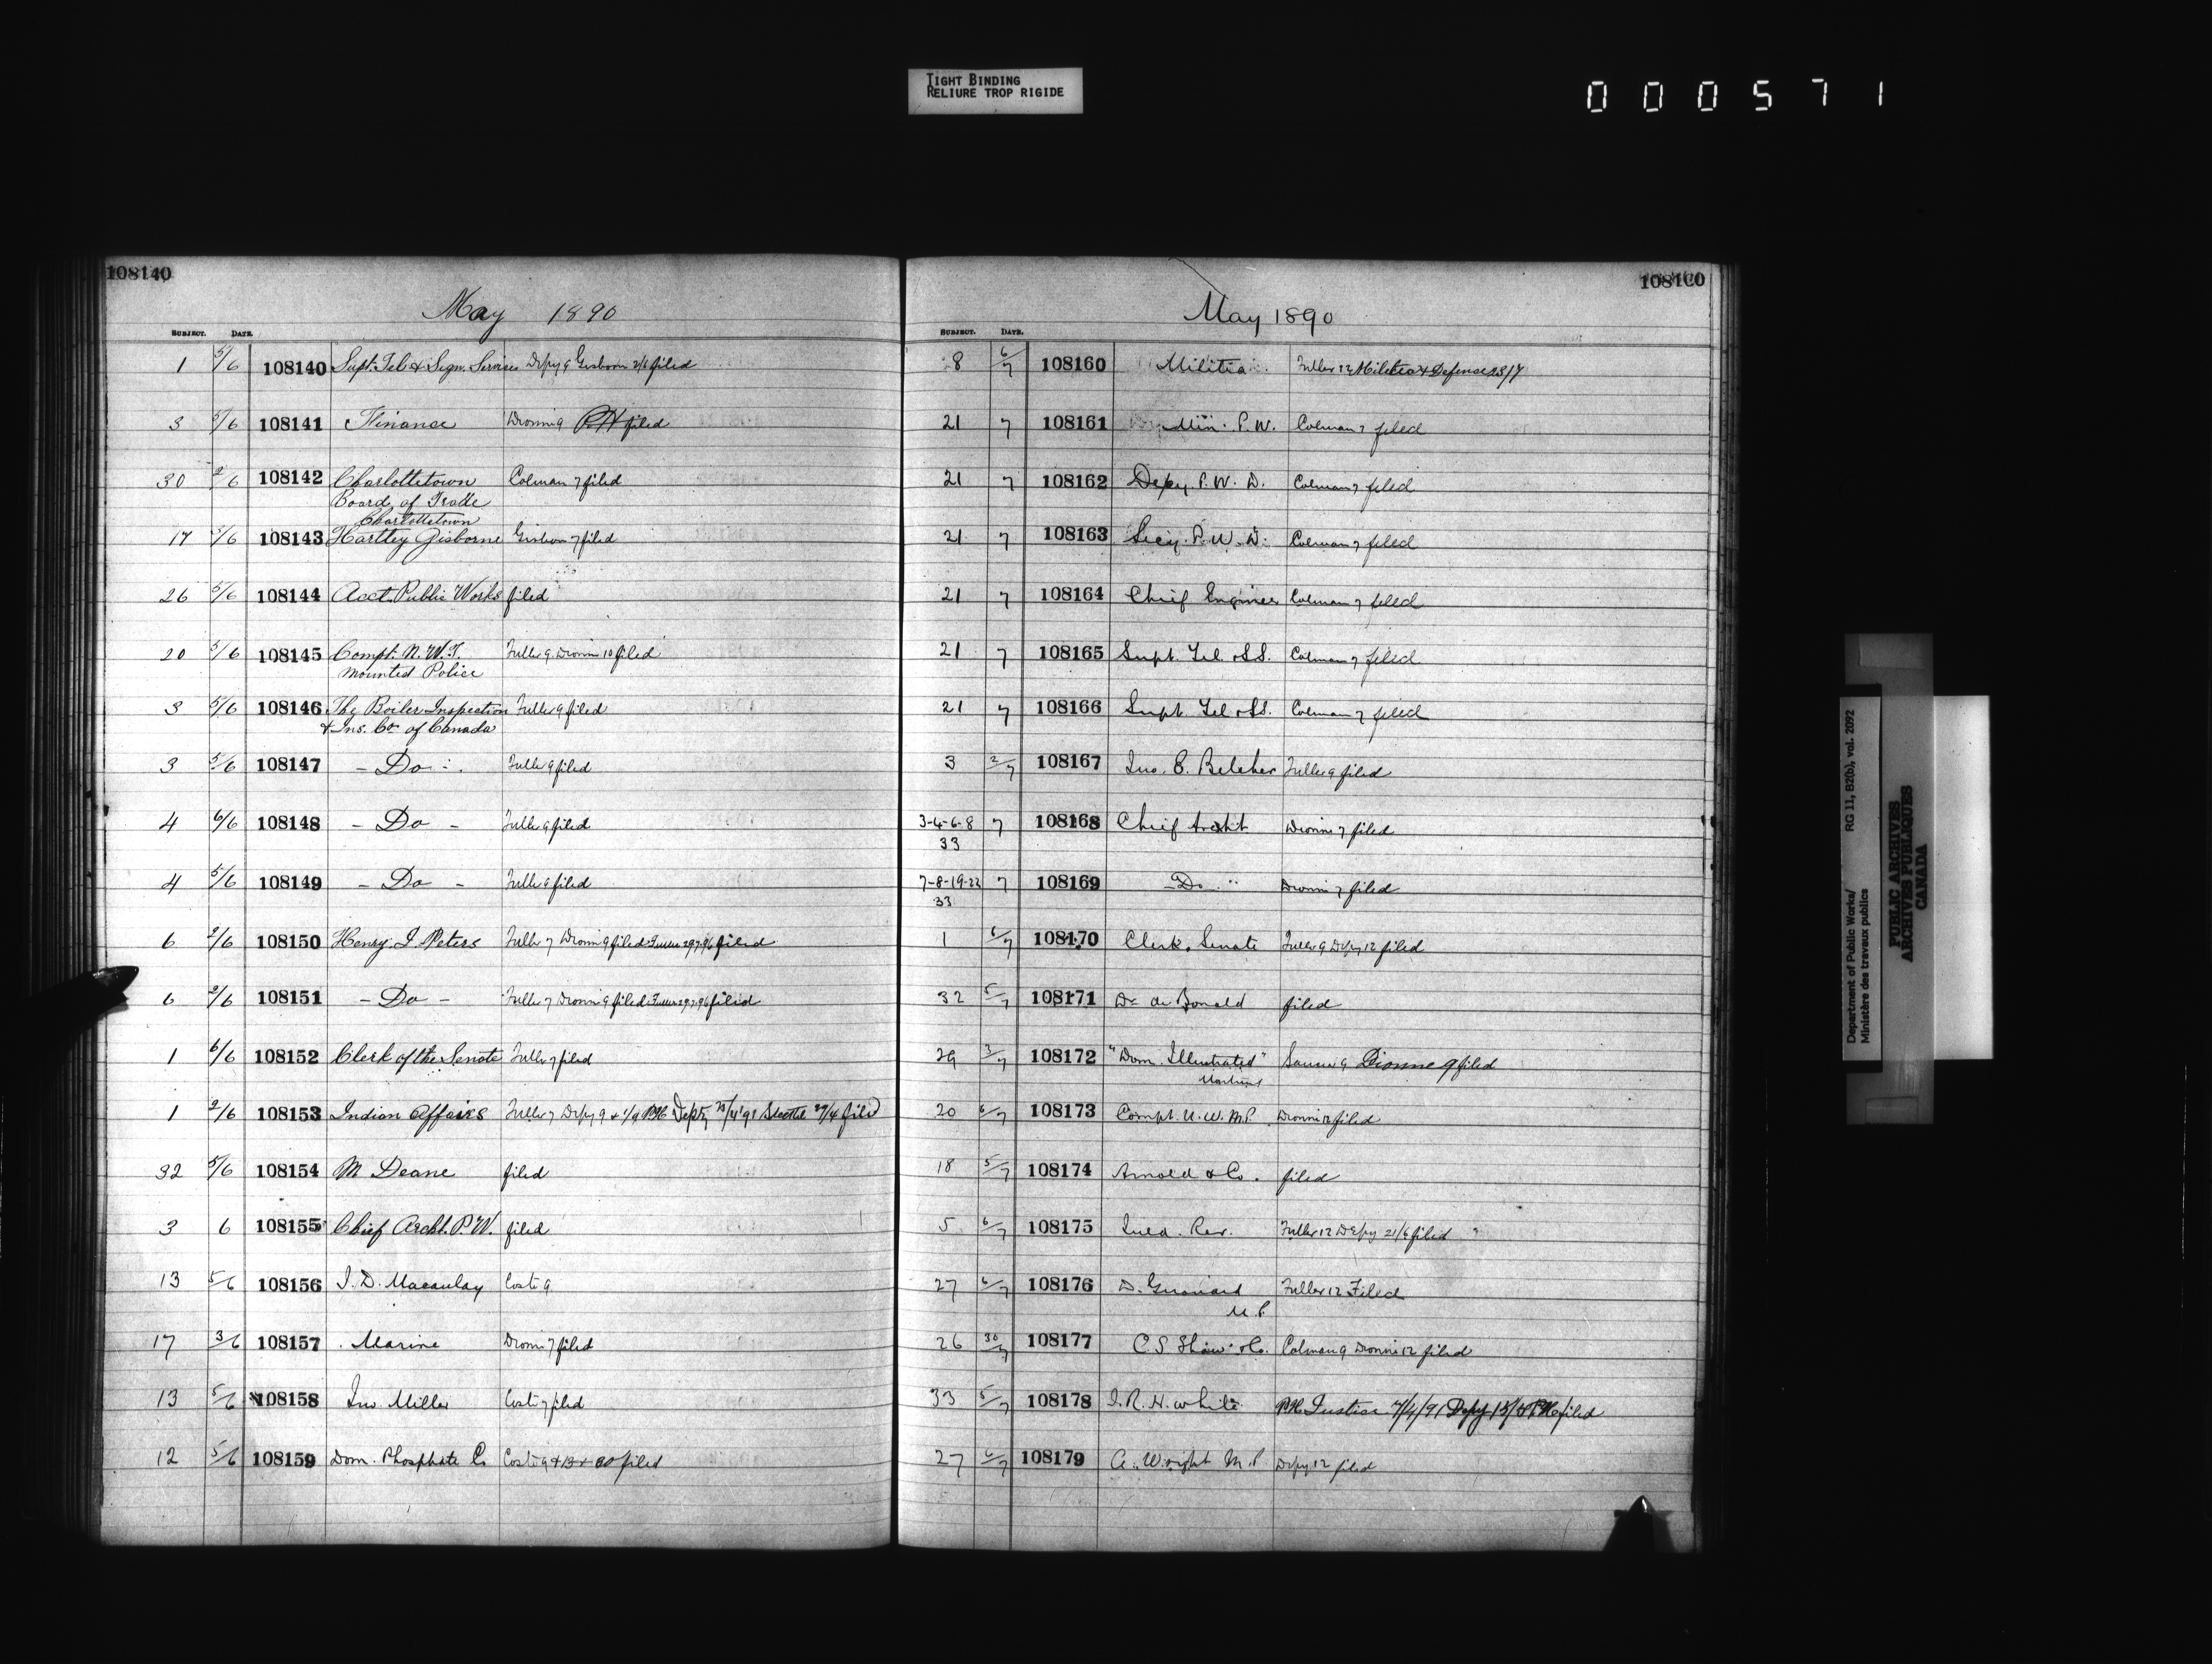 TIGHT BINDING
RELIURE TROP RIGIDE
000571
108140
May 1890
SUBJECT. DATE.
1 5/6 108140 Supt. Tel & Sign. Services Depy 9 Gisborn 2/6 filed
3 5/6 108141 Finance Dionne 9 PH filed
30 2/6 108142 Charlottetown Colman 7 filed
Board of Trade
Charlottetown
17 5/6 108143 Hartley Gisborne Gisborn 7 filed
26 5/6 108144 Acct. Public Works filed
20 5/6 108145 Compt. N.W.T. Fuller 9 Dionne 10 filed
Mounted Police
3 5/6 108146 The Boiler Inspection Fuller 9 filed
& Ins. Co. of Canada
3 5/6 108147 - Do - Fuller 9 filed
4 6/6 108148 - Do - Fuller 9 filed
4 5/6 108149 - Do - Fuller 9 filed
6 2/6 108150 Henry J. Peters Fuller 7 Dionne 9 filed Fuller 29.7.96 filed
6 2/6 108151 - Do - Fuller 7 Dionne 9 filed Fuller 29.7.96 filed
1 6/6 108152 Clerk of the Senate Fuller 7 filed
1 2/6 108153 Indian Affairs Fuller 7 Depy 9 & 1/9 PH Depty 25/4/91 27/4 filed
32 5/6 108154 M Deane filed
3 6 108155 Chief Archt. P.W. filed
13 5/6 108156 J. D. Macaulay Coste 9
17 3/6 108157 Marine Dionne 7 filed
13 5/6 108158 Jno. Miller Coste 7 filed
12 5/6 108159 Dom. Phosphate Co Coste 9 & 13 & 30 filed
108160
May 1890
SUBJECT. DATE.
8 6/7 108160 Militia Fuller 12 Militia & Defence 23/7
21 7 108161 Min. P.W. Colman 7 filed
21 7 108162 Depy. P.W.D. Colman 7 filed
21 7 108163 Secy. P.W.D. Colman 7 filed
21 7 108164 Chief Engineer Colman 7 filed
21 7 108165 Supt. Tel. & S.S. Colman 7 filed
21 7 108166 Supt. Tel & SS. Colman 7 filed
3 2/7 108167 Jno. E. Belcher Fuller 9 filed
3-4-6-8 7 108168 Chief Archt Dionne 7 filed
33
7-8-19-22 7 108169 - Do - Dionne 7 filed
33
1 6/7 108170 Clerk, Senate Fuller 9 Depy 12 filed
32 5/7 108171 Dr de Bonald filed
29 3/7 108172 "Dom. Illustrated" 9 Dionne 9 filed
Montreal
20 6/7 108173 Compt. N.W.M.P. Dionne 12 filed
18 5/7 108174 Arnold & Co. filed
5 6/7 108175 Inld. Rev. Fuller 12 Depy 21/6 filed
27 6/7 108176 D. Girouard Fuller 12 Filed
M.P.
26 30/7 108177 C. S. Shaw & Co. Colman 9 Dionne 12 filed
33 5/7 108178 J. R. H. White PH Justice 7/4/91 Depy filed
27 6/7 108179 A. Wright M.P. Depy 12 filed
Department of Public Works/ RG 11, B2(b), vol. 2092
Ministère des travaux publics
PUBLIC ARCHIVES
ARCHIVES PUBLIQUES
CANADA